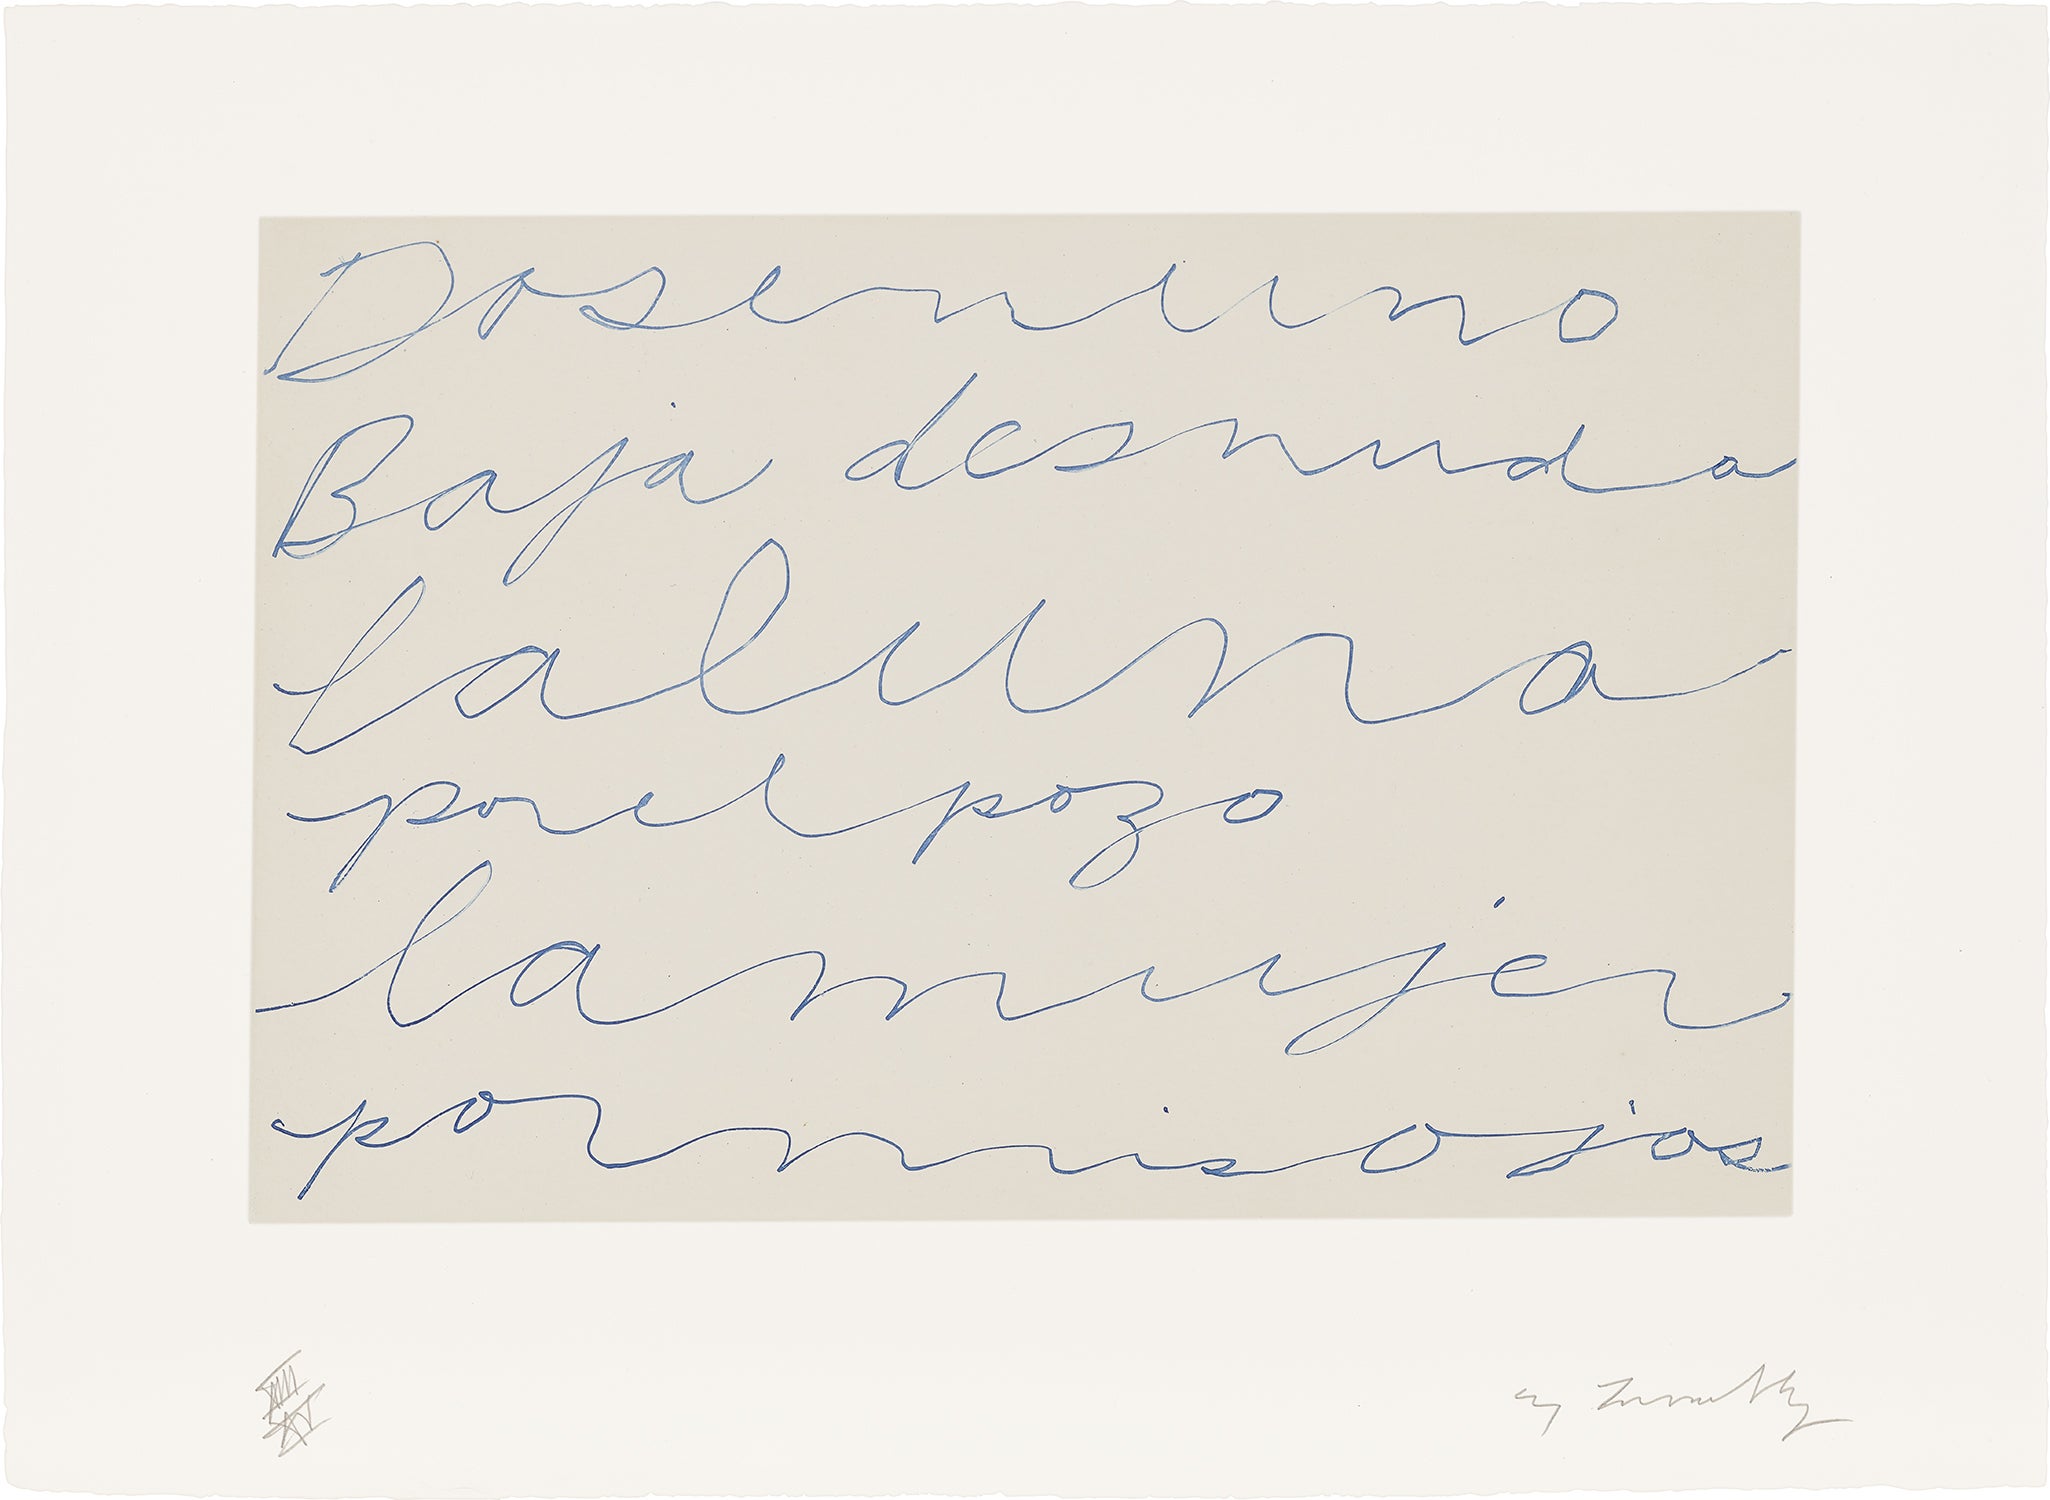 Dos en uno
Baja desnuda
la luna
por el pozo
la mujer
por mis ojos
Cy Twombly